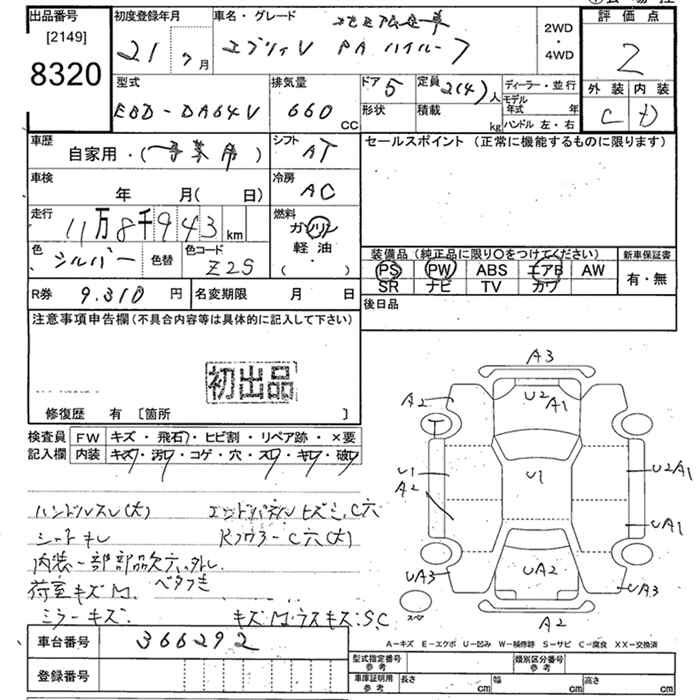 出品番号
[2149]
8320
初度登録年月
21 7月
車名・グレード
エブリイV PA ハイルーフ
2WD
・
4WD
評価点
2
外装 内装
C D
型式
EBD-DA64V
排気量
660 CC
ドア 5
形状
定員 2(4)人
積載 kg
ディーラー・並行
モデル年式 年
ハンドル 左・右
車歴
自家用・(事業用)
シフト AT
セールスポイント (正常に機能するものに限ります)
車検
年 月( 日)
冷房 AC
走行
11万8千943km
燃料
ガソリン
軽油
・
( )
色 シルバー 色替
色コード Z2S
装備品 (純正品に限り〇をつけてください)
新車保証書
PS PW ABS エアB AW
SR ナビ TV カワ
有・無
R券 9.310円
名変期限 月 日
後日品
注意事項申告欄(不具合内容等は具体的に記入して下さい)
初出品
修復歴 有 [箇所 ]
検査員記入欄
FW キズ・飛石・ヒビ割・リペア跡・×要
内装 キズ・汚レ・コゲ・穴・スレ・キレ・破レ
ハンドルスレ(大) エンドパネルヒズミ、C穴
シートキレ Rフロアー C穴(大)
内装一部部品欠穴、外し
荷室キズM ベタつき
ミラーキズ キズM・ラスキズ:S,C
A3
A2
U2 A1
U1
A2
U1
U2A1
UA1
UA3
UA2
UA3
スペア
A2
A-キズ E-エクボ U-凹み W-補修跡 S-サビ C-腐食 XX-交換済
車台番号 366292
登録番号
型式指定番号 参考
類別区分番号 参考
車庫証明用 参考
長さ cm 幅 cm 高さ cm